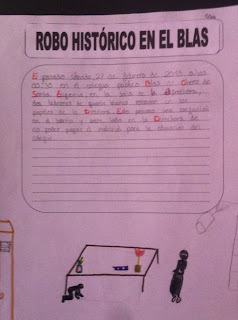 ROBO HISTÓRICO EN EL BLAS
El pasado sábado, 27 de febrero de a las
00:30 en el colegio público Blas de Otero de
en la sala de la directora,
dos ladrones de guante blanco robaron
papeles de la Directora. Esto provoca una
en el barrio y sobre todo en la Directora de
no poder pagar el material para la educación del
colegio.